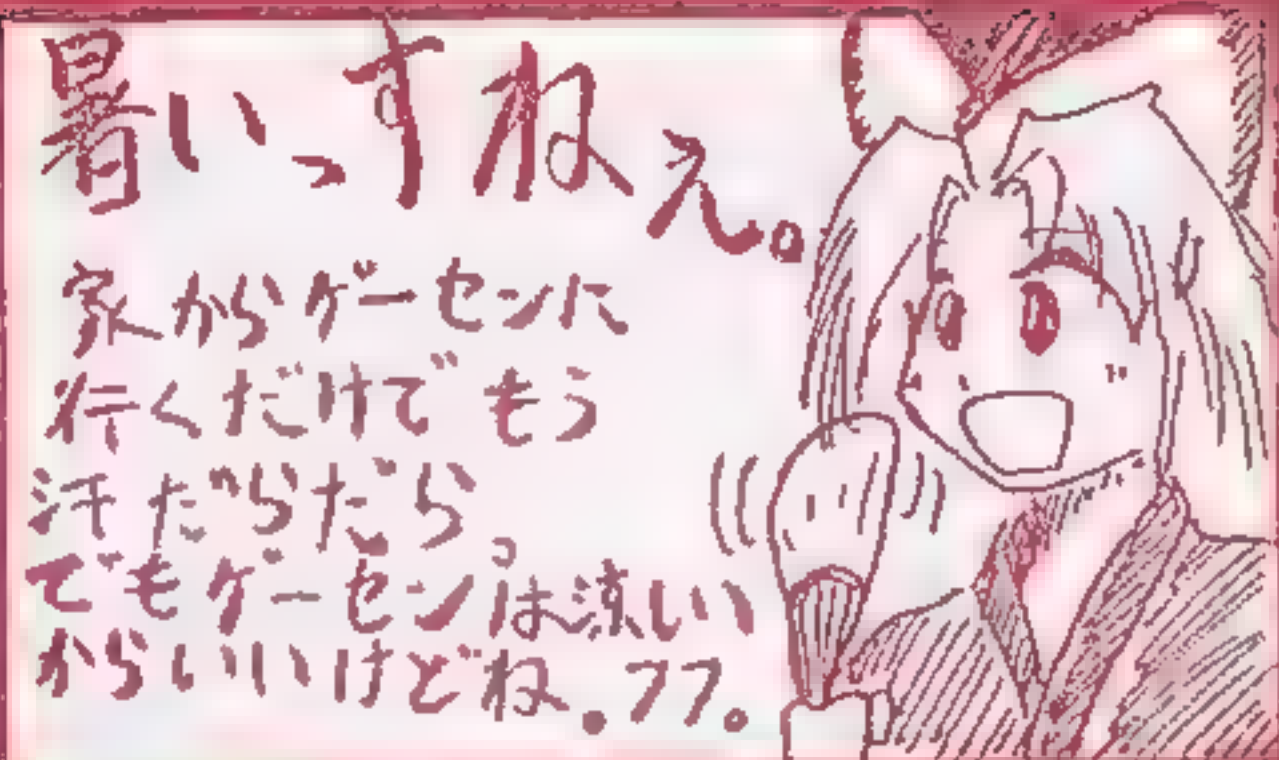 暑いっすねぇ。
家からゲーセンに
行くだけでもう
汗だらだら。
でもゲーセンは涼しい
からいいけどね.フフ。